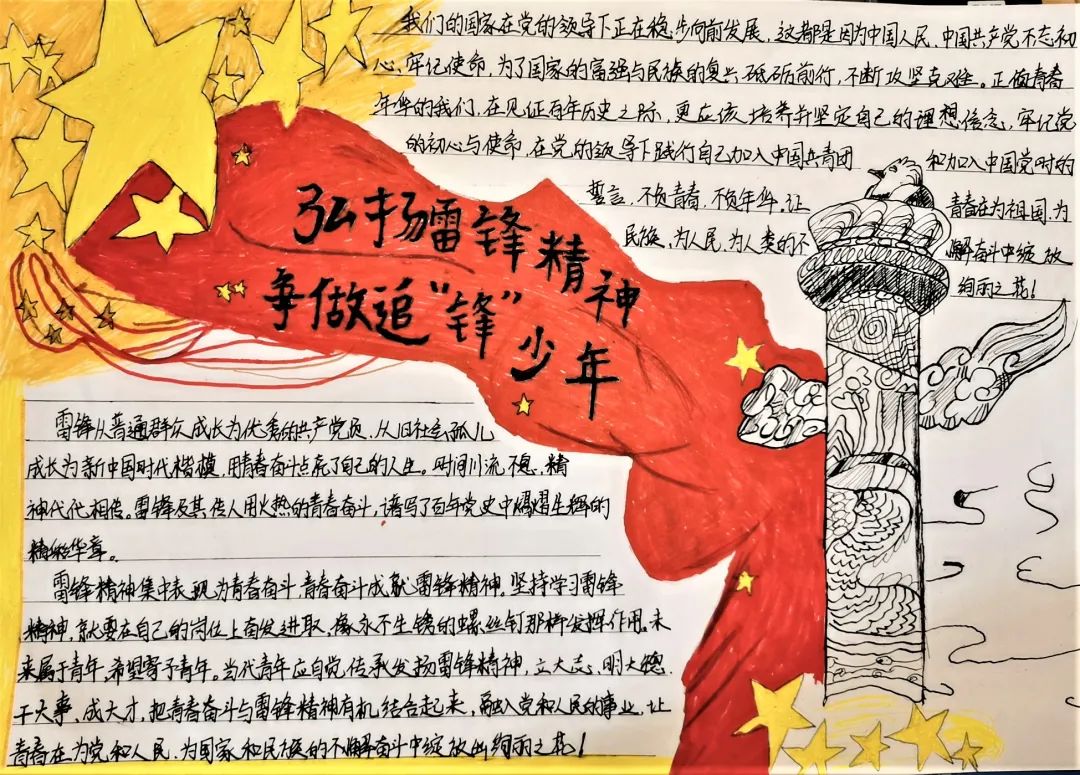 我们的国家在党的领导下正在稳步向前发展，这都是因为中国人民、中国共产党不忘初
心、牢记使命，为了国家的富强与民族的复兴砥砺前行，不断攻坚克难。正值青春
年华的我们，在见证百年历史之际，更应该培养并坚定自己的理想信念，牢记党
的初心与使命，在党的领导下践行自己加入中国共青团和加入中国党时的
誓言，不负青春，不负年华，让青春在为祖国，为
民族，为人民，为人类的不懈奋斗中绽放
绚丽之花！
弘扬雷锋精神
争做追“锋”少年
雷锋从普通群众成长为优秀的共产党员，从旧社会孤儿
成长为新中国时代楷模，用青春奋斗点亮了自己的人生。时间川流不息，精
神代代相传。雷锋及其传人用火热的青春奋斗，谱写了百年党史中熠熠生辉的
精彩华章。
雷锋精神集中表现为青春奋斗，青春奋斗成就雷锋精神。坚持学习雷锋
精神，就要在自己的岗位上奋发进取，像永不生锈的螺丝钉那样发挥作用。未
来属于青年，希望寄予青年。当代青年应自觉传承发扬雷锋精神，立大志、明大德、
干大事、成大才，把青春奋斗与雷锋精神有机结合起来，融入党和人民的事业，让
青春在为党和人民、为国家和民族的不懈奋斗中绽放出绚丽之花！